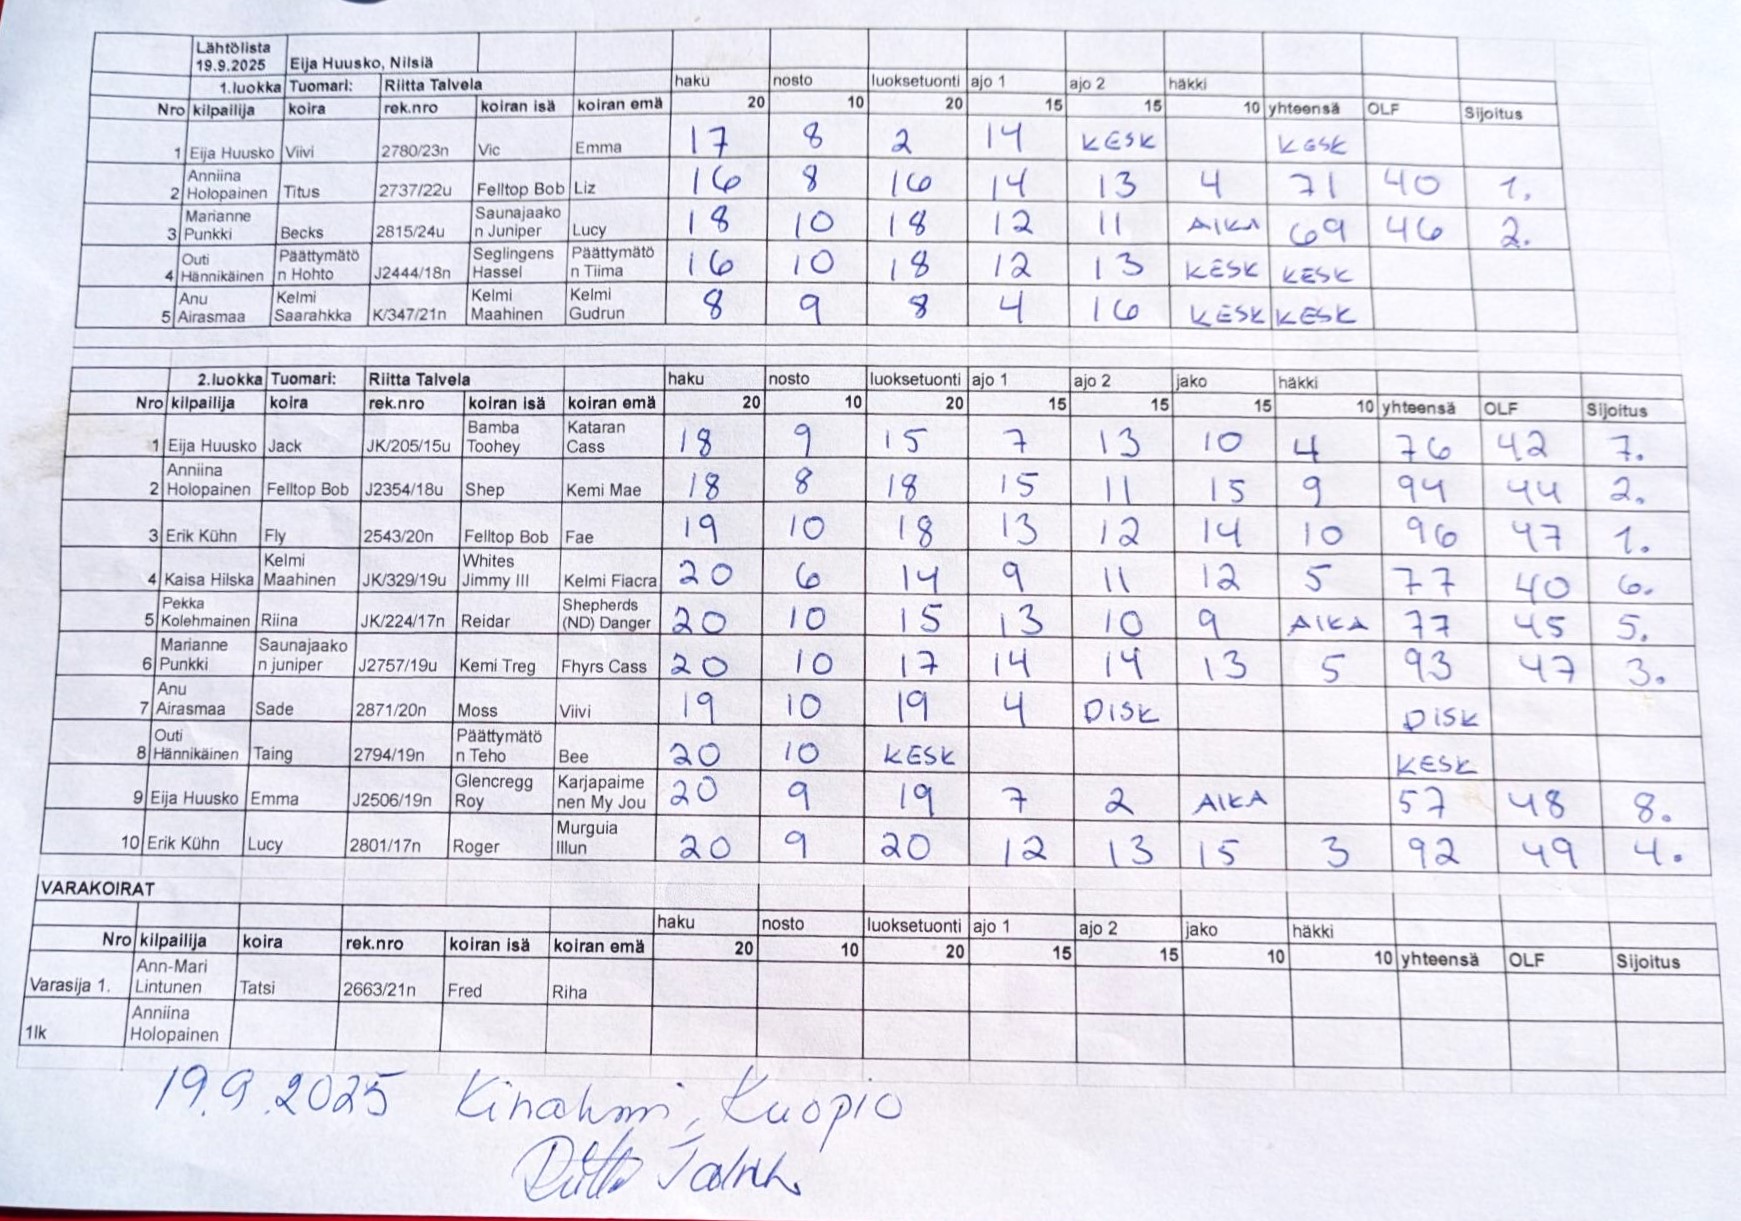 Lähtölista
19.9.2025 Eija Huusko, Nilsiä
1.luokka Tuomari: Riitta Talvela haku nosto luoksetuonti ajo 1 ajo 2 häkki
Nro kilpailija koira rek.nro koiran isä koiran emä 20 10 20 15 15 10 yhteensä OLF Sijoitus
1 Eija Huusko Viivi 2780/23n Vic Emma 17 8 2 14 KESK KESK
Anniina
2 Holopainen Titus 2737/22u Felltop Bob Liz 16 8 16 14 13 4 71 40 1.
Marianne Saunajaako
3 Punkki Becks 2815/24u n Juniper Lucy 18 10 18 12 11 AIKA 69 46 2.
Outi Päättymätö Seglingens Päättymätö
4 Hännikäinen n Hohto J2444/18n Hassel n Tiima 16 10 18 12 13 KESK KESK
Anu Kelmi Kelmi Kelmi
5 Airasmaa Saarahkka K/347/21n Maahinen Gudrun 8 9 8 4 16 KESK KESK
2.luokka Tuomari: Riitta Talvela haku nosto luoksetuonti ajo 1 ajo 2 jako häkki
Nro kilpailija koira rek.nro koiran isä koiran emä 20 10 20 15 15 15 10 yhteensä OLF Sijoitus
Bamba Kataran
1 Eija Huusko Jack JK/205/15u Toohey Cass 18 9 15 7 13 10 4 76 42 7.
Anniina
2 Holopainen Felltop Bob J2354/18u Shep Kemi Mae 18 8 18 15 11 15 9 94 44 2.
3 Erik Kühn Fly 2543/20n Felltop Bob Fae 19 10 18 13 12 14 10 96 47 1.
Kelmi Whites
4 Kaisa Hilska Maahinen JK/329/19u Jimmy III Kelmi Fiacra 20 6 14 9 11 12 5 77 40 6.
Pekka Shepherds
5 Kolehmainen Riina JK/224/17n Reidar (ND) Danger 20 10 15 13 10 9 AIKA 77 45 5.
Marianne Saunajaako
6 Punkki n juniper J2757/19u Kemi Treg Fhyrs Cass 20 10 17 14 14 13 5 93 47 3.
Anu
7 Airasmaa Sade 2871/20n Moss Viivi 19 10 19 4 DISK DISK
Outi Päättymätö
8 Hännikäinen Taing 2794/19n n Teho Bee 20 10 KESK KESK
Glencregg Karjapaime
9 Eija Huusko Emma J2506/19n Roy nen My Jou 20 9 19 7 2 AIKA 57 48 8.
Murguia
10 Erik Kühn Lucy 2801/17n Roger Illun 20 9 20 12 13 15 3 92 49 4.
VARAKOIRAT
haku nosto luoksetuonti ajo 1 ajo 2 jako häkki
Nro kilpailija koira rek.nro koiran isä koiran emä 20 10 20 15 15 10 10 yhteensä OLF Sijoitus
Ann-Mari
Varasija 1. Lintunen Tatsi 2663/21n Fred Riha
Anniina
1lk Holopainen
19.9.2025 Kinahmi, Kuopio